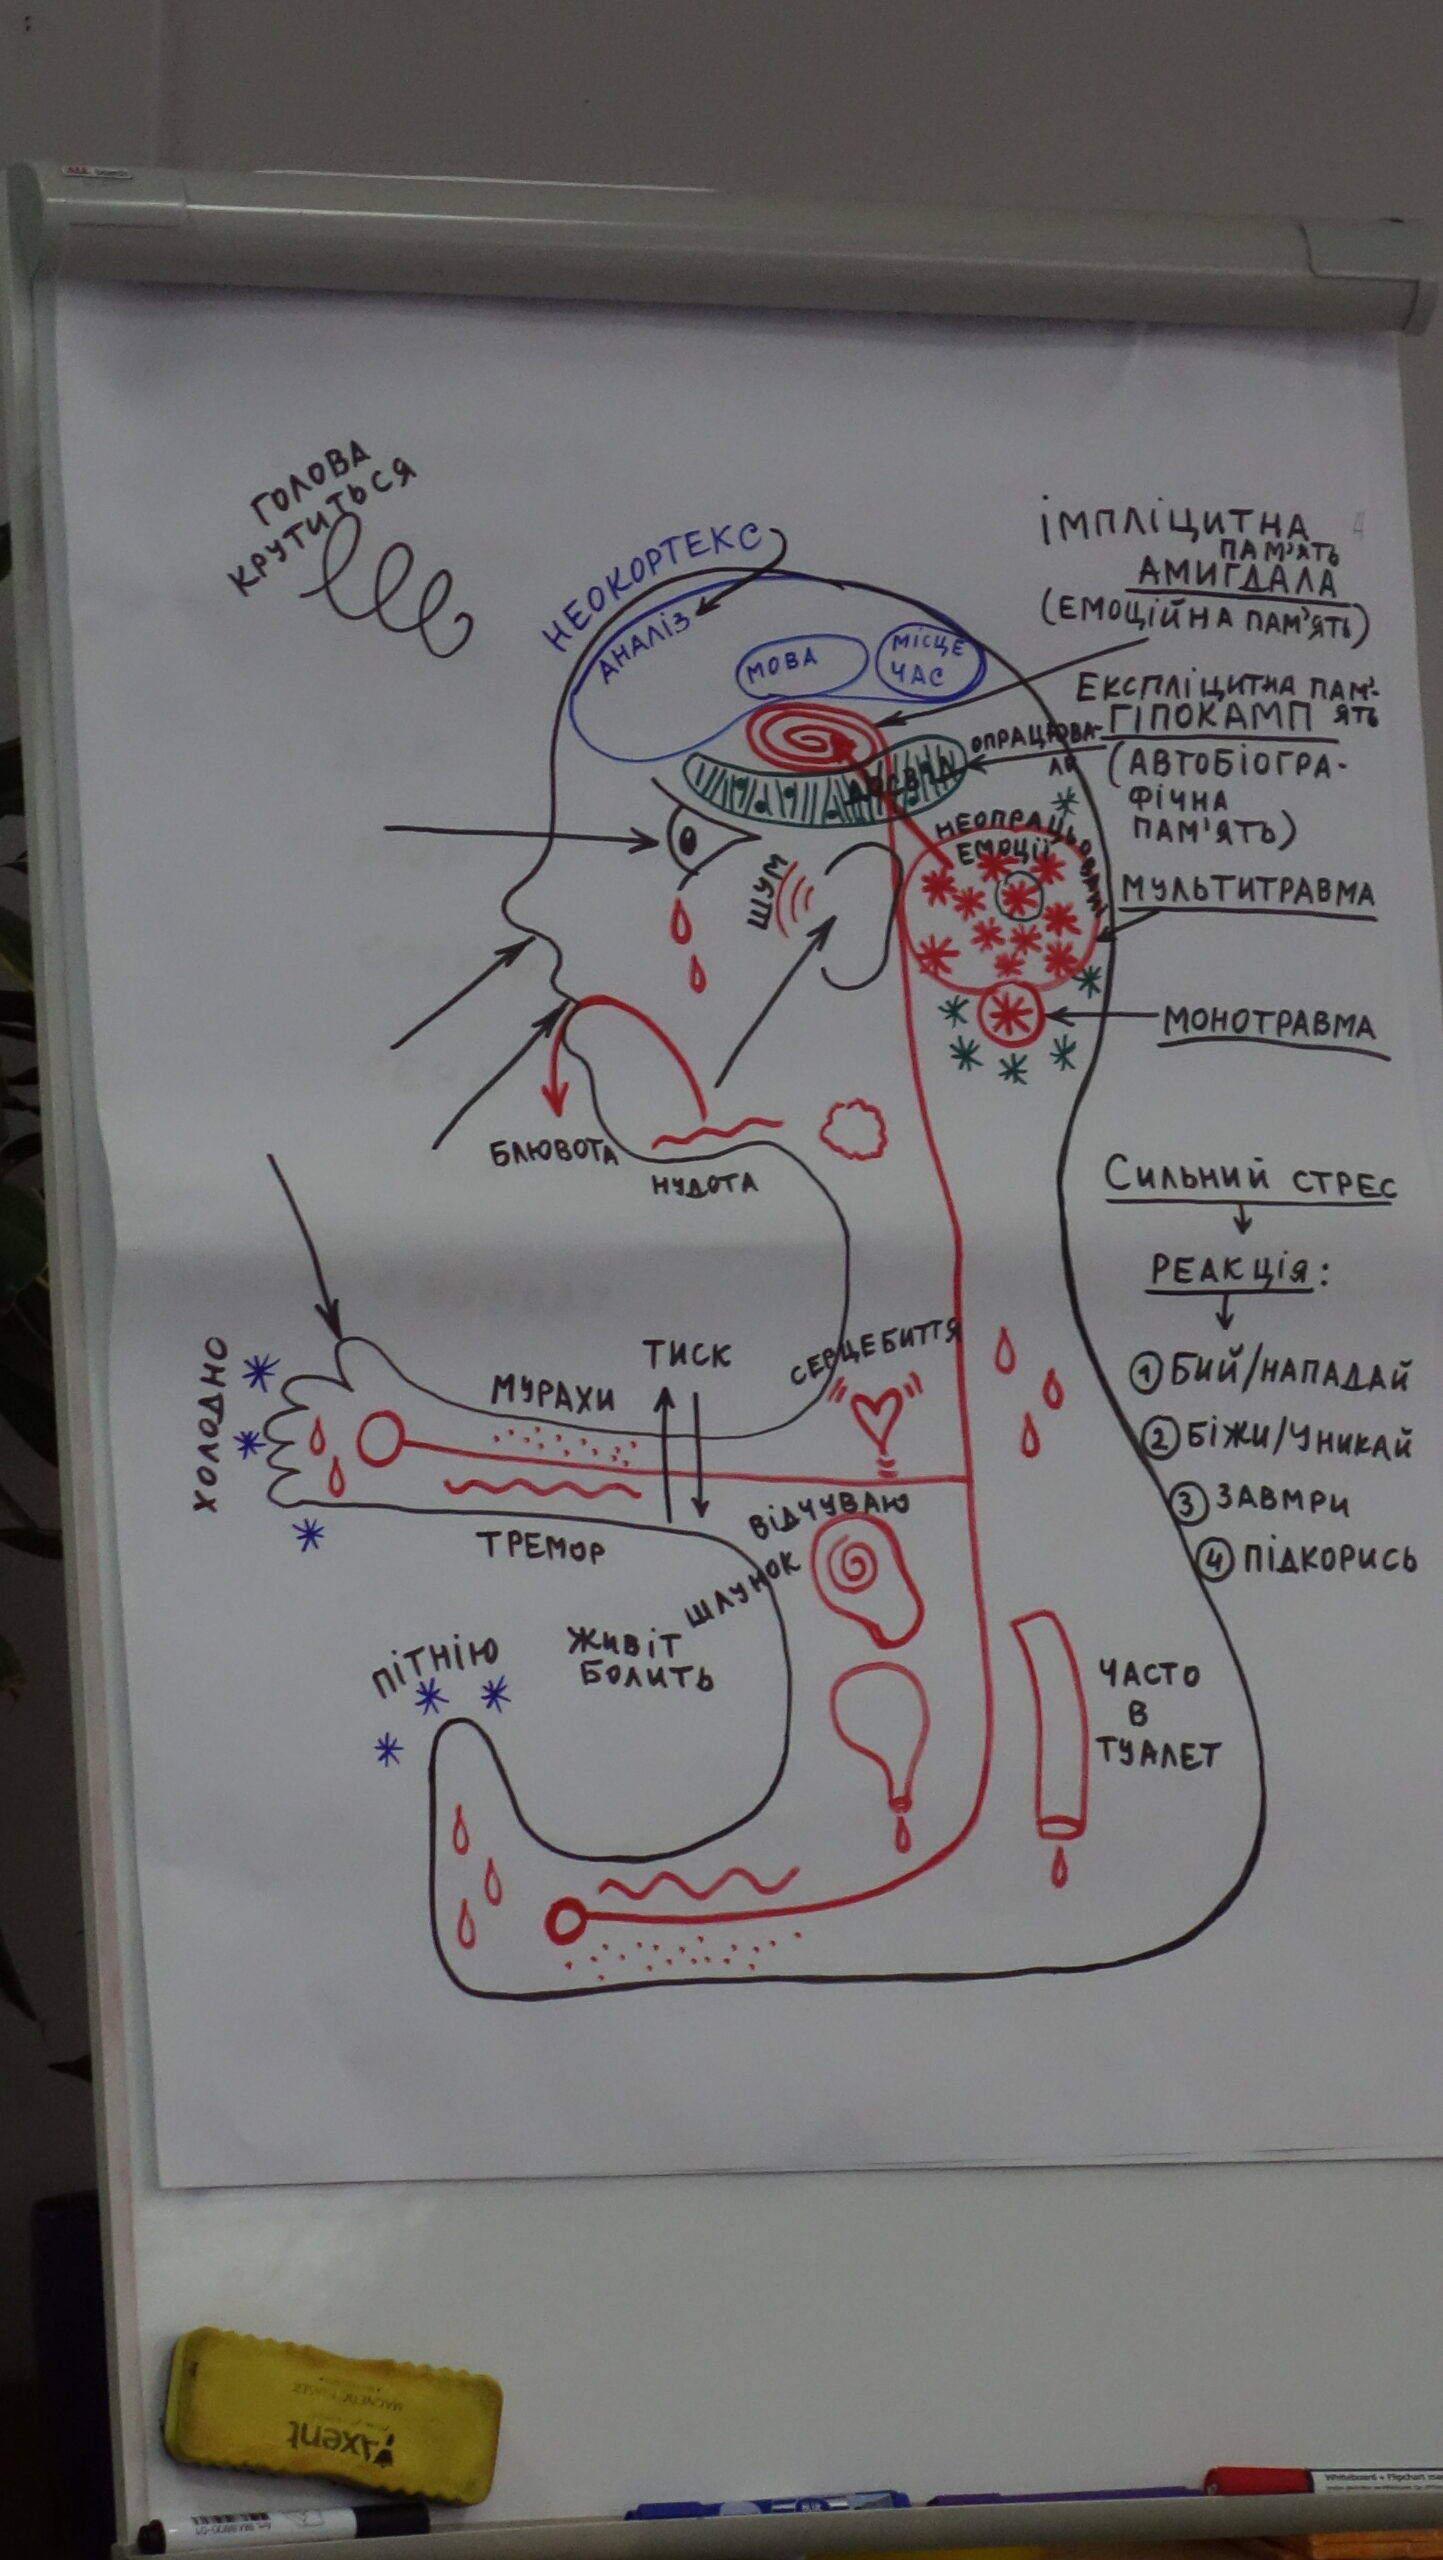 ГОЛОВА
КРУТИТЬСЯ
НЕОКОРТЕКС
АНАЛІЗ
МОВА
МІСЦЕ
ЧАС
ІМПЛІЦИТНА
ПАМ'ЯТЬ
АМИГДАЛА
(ЕМОЦІЙНА ПАМ'ЯТЬ)
ЕКСПЛІЦИТНА ПАМ'-
ГІПОКАМП ЯТЬ
(АВТОБІОГРА-
ФІЧНА
ПАМ'ЯТЬ)
ДОСВІД
НЕОПРАЦЬОВАНІ
ЕМОЦІЇ
МУЛЬТИТРАВМА
МОНОТРАВМА
ШУМ
БЛЮВОТА
НУДОТА
СИЛЬНИЙ СТРЕС
РЕАКЦІЯ:
1 БИЙ/НАПАДАЙ
2 БІЖИ/УНИКАЙ
3 ЗАВМРИ
4 ПІДКОРИСЬ
ХОЛОДНО
МУРАХИ
ТИСК
СЕРЦЕБИТТЯ
ТРЕМОР
ВІДЧУВАЮ
ШЛУНОК
ПІТНІЮ
ЖИВІТ
БОЛИТЬ
ЧАСТО
В
ТУАЛЕТ
Axent
Whiteboard + Flipchart